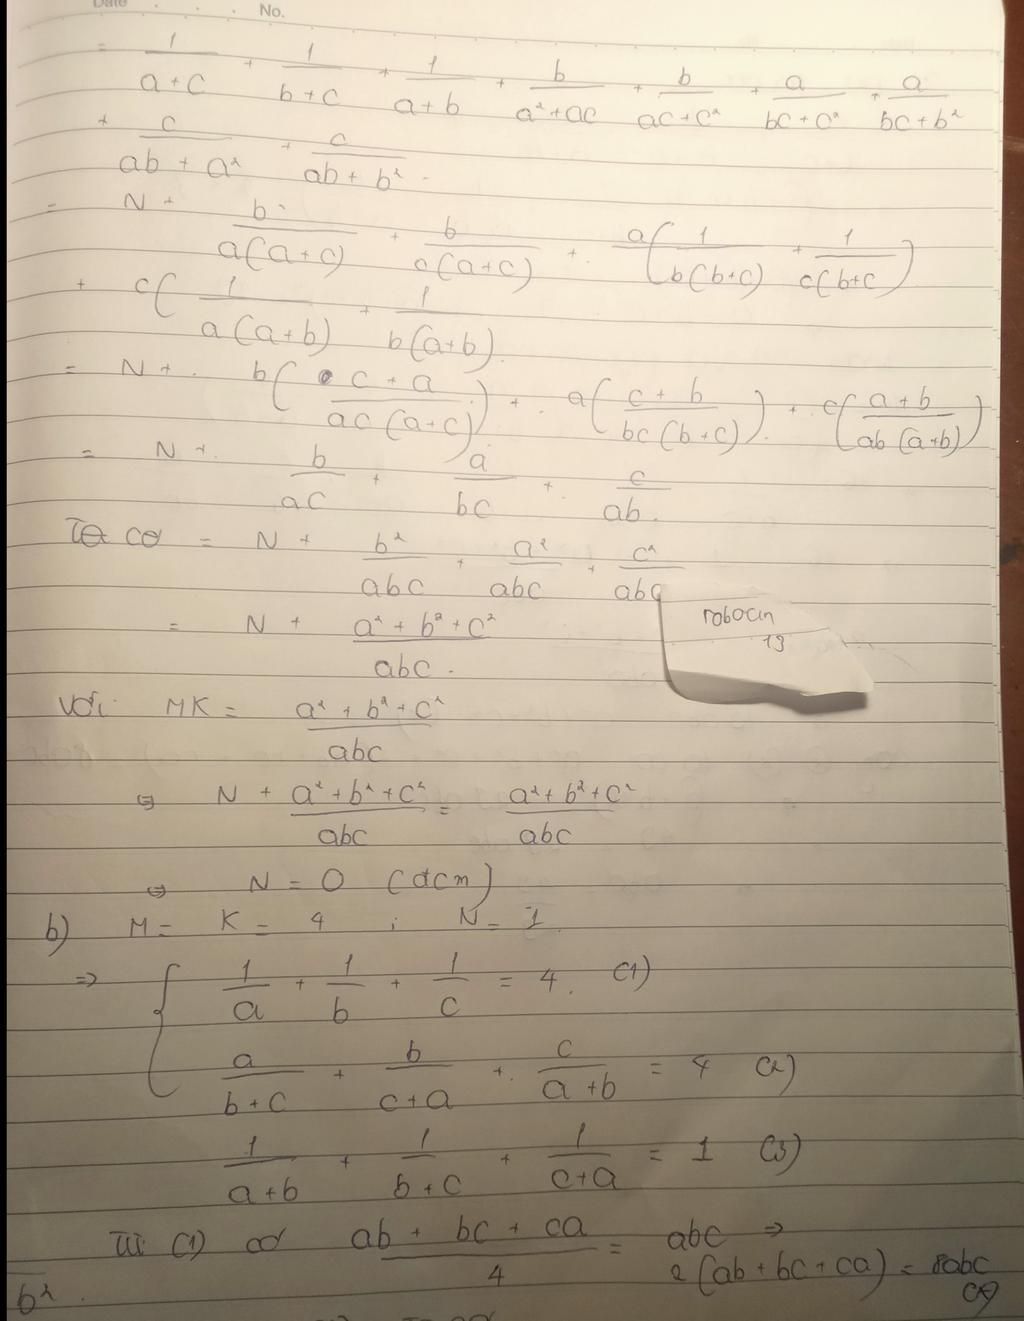 Date . . . . No.
= 1/(a+c) + 1/(b+c) + 1/(a+b) + b/(a²+ac) + b/(ac+c²) + a/(bc+c²) + a/(bc+b²)
+ c/(ab+a²) + c/(ab+b²)
= N + b/(a(a+c)) + b/(c(a+c)) + a(1/(b(b+c)) + 1/(c(b+c)))
+ c(1/(a(a+b)) + 1/(b(a+b)))
= N + b((c+a)/(ac(a+c))) + a((c+b)/(bc(b+c))) + c((a+b)/(ab(a+b)))
= N + b/(ac) + a/(bc) + c/(ab)
Ta có = N + b²/(abc) + a²/(abc) + c²/(abc)
robocin
13
= N + (a²+b²+c²)/(abc)
Với MK = (a²+b²+c²)/(abc)
⇔ N + (a²+b²+c²)/(abc) = (a²+b²+c²)/(abc)
⇔ N = 0 (đcm)
b) M = K = 4 ; N = 1
=> { 1/a + 1/b + 1/c = 4. (1)
a/(b+c) + b/(c+a) + c/(a+b) = 4 (2)
1/(a+b) + 1/(b+c) + 1/(c+a) = 1 (3)
Từ (1) có (ab+bc+ca)/4 = abc =>
2(ab+bc+ca) = 8abc
b².